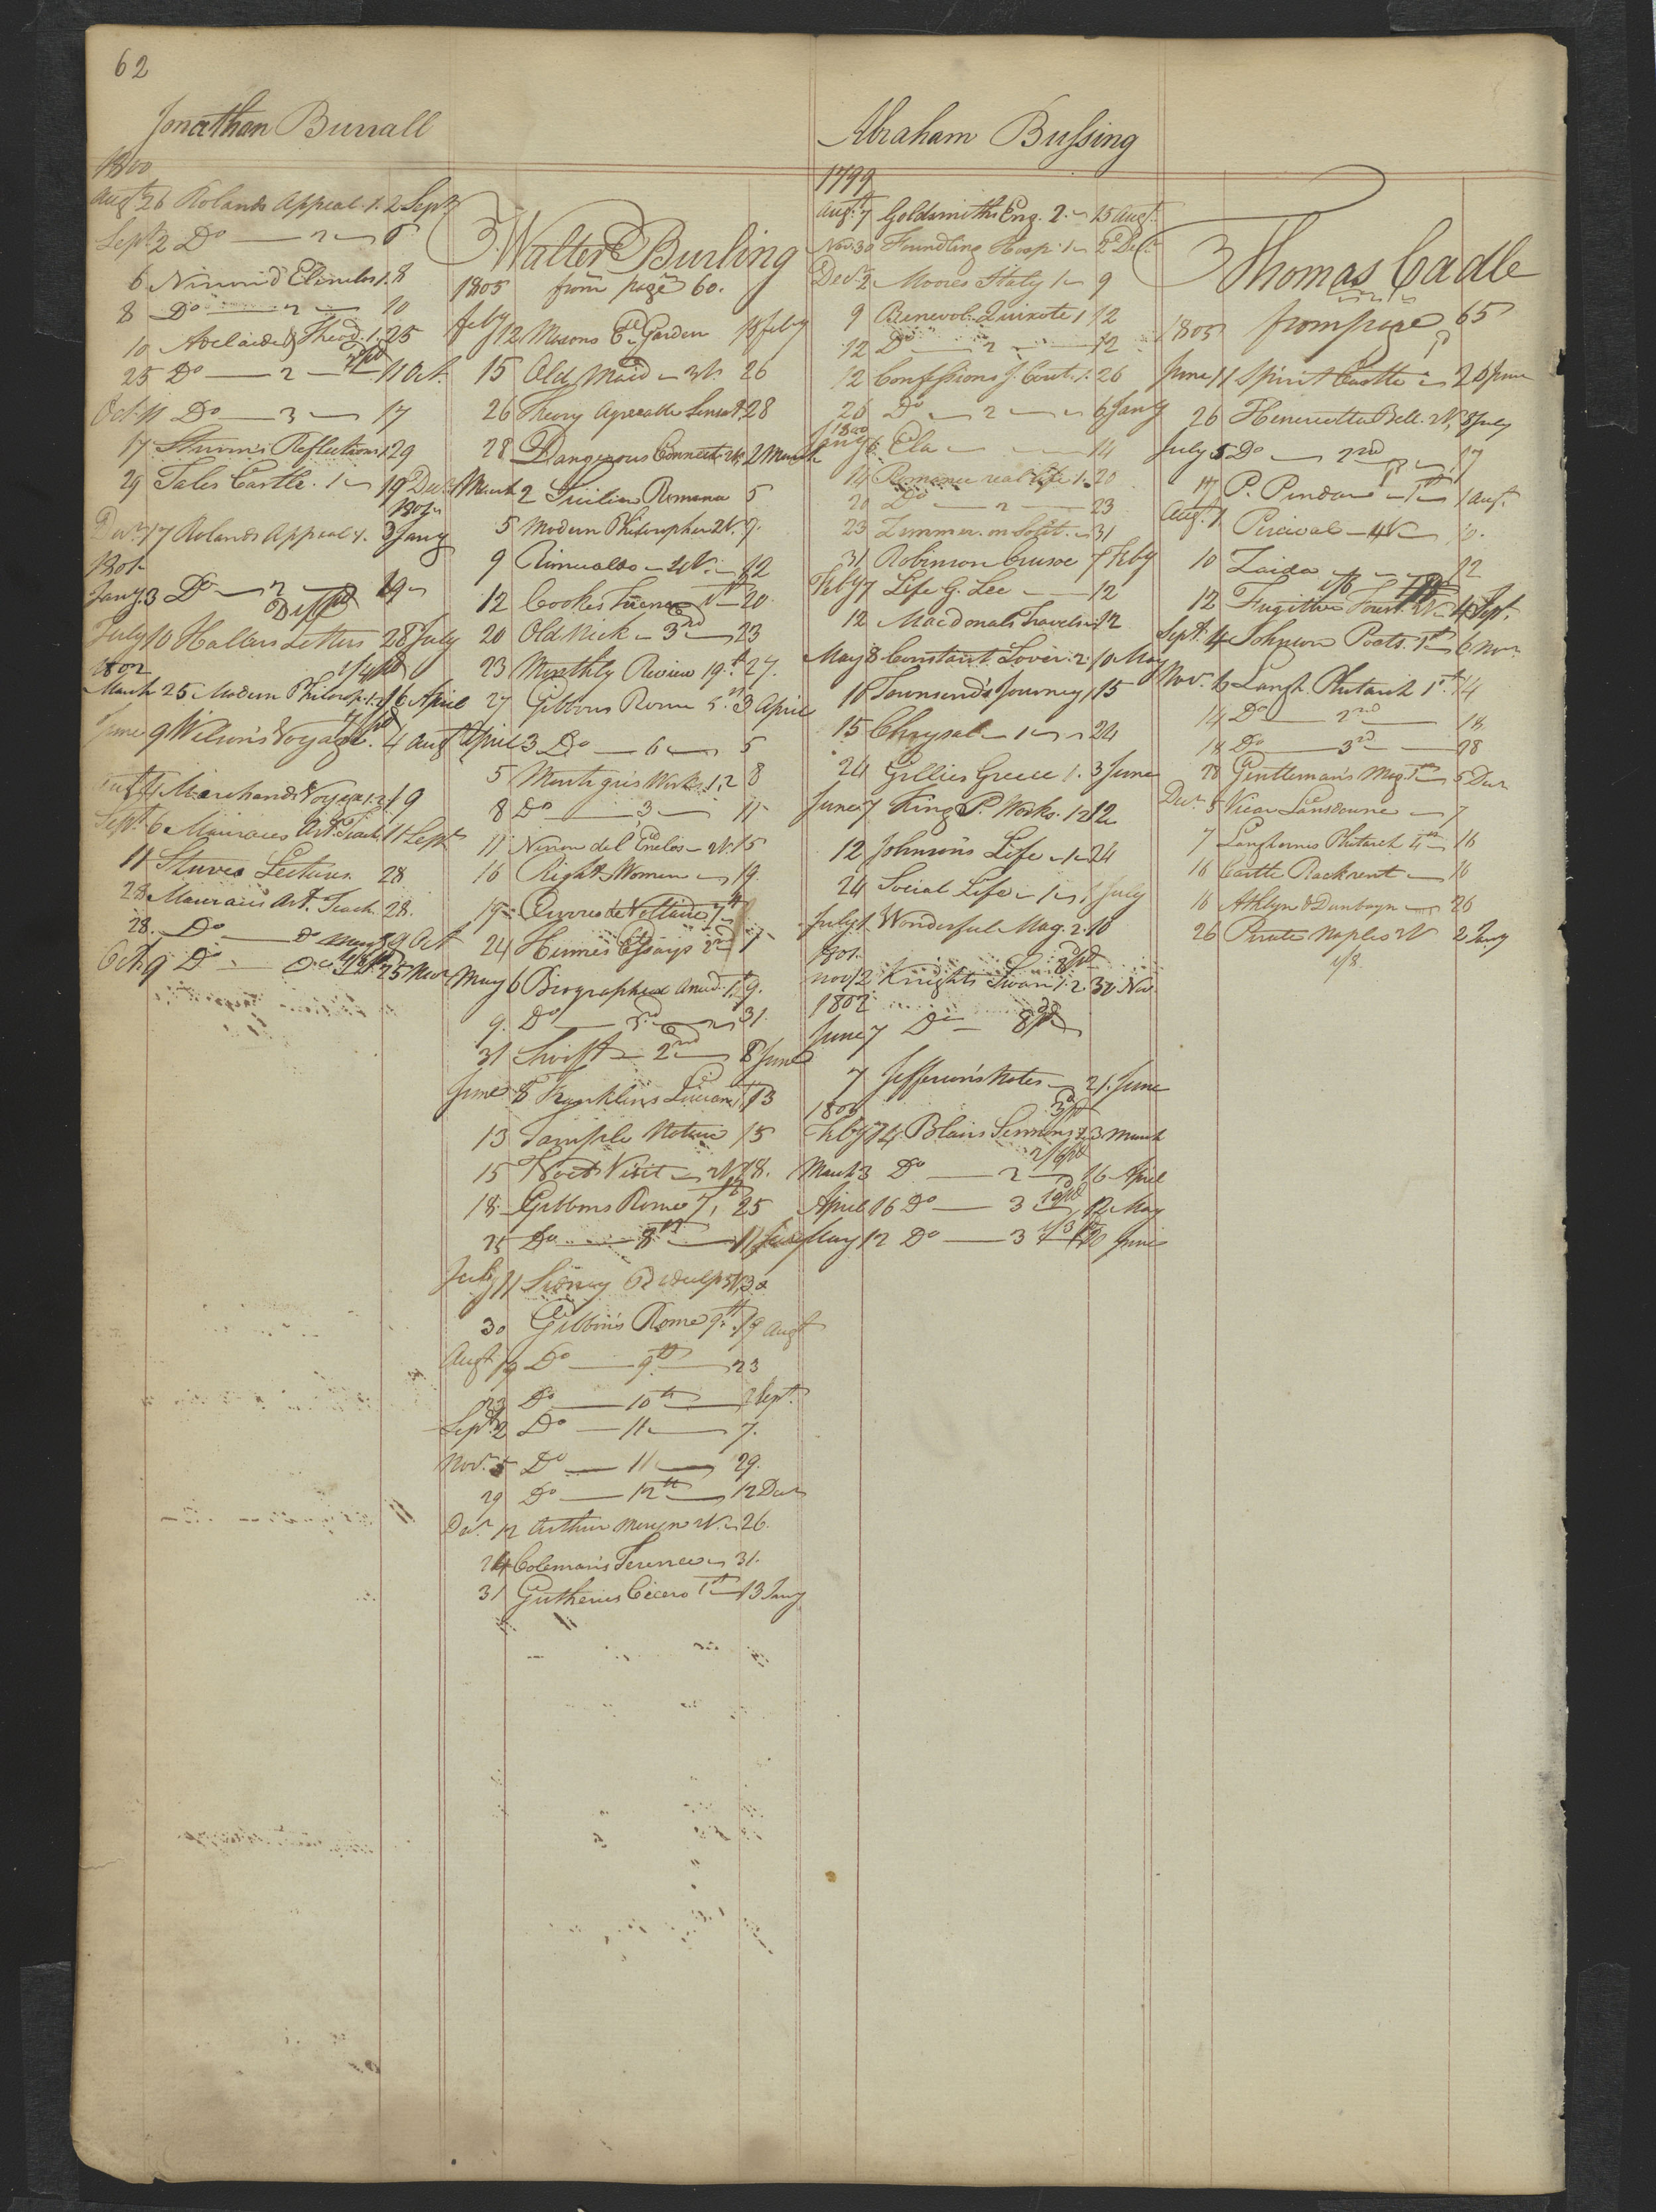 62
Jonathan Burrall
1800
Augt 26 Rolands Appeal . 1. 2 Sept
Sept 2 Do — 2 — 6
6 Ninon d'Elenclos 1. 8
8 Do — 2 — 10
10 Adelaide & Theod. 1. 25
25 Do — 2 — 11 Oct.
Oct. 11 Do — 3 — 17
17 Sturm's Reflections 1 29
29 Tales Castle . 1 — 19 Decr
1801
Decr 17 Rolands Appeal 1. 3 Jany
1801
Jany 3 Do — 2 — 19
July 10 Hallers Letters 28 July
1802
March 25 Modern Philosop. 1.2 16 April
June 9 Wilson's Voyage . 4 Augt
Marchand's Voyage 1.2 19
Sept. 6 Mauraies Art. Teach. 11 Sept
11 Stuves Lectures 28
28 Mauraies Art. Teach. 28.
28. Do — Do 9 Oct
Oct 9 Do 25 Novr
Walter Burling
1805 from page 60.
Feby 12 Masons E. Garden 15 feby
15 Old Maid — 3V. 26
26 Theory Agreeable Sensat. 28
28 Dangerous Connect. 2V. 2 March
March 2 Sicilian Romance 5
5 Modern Philosopher 2V. 9.
9 Rinualdo — 2V. — 12
12 Cookes 1st — 20
20 Old Nick — 3rd — 23
23 Monthly Review 19th 27.
27 Gibbons Rome 5. 3 April
April 3 Do — 6 — 5
5 Montagu's Works 1,2 8
8 Do — 3 — 11
11 Ninon del Enclos — 2V. 15
16 Rights Women — 19.
19 Euvres de Voltaire 7th
24 Humes Essays 2nd 1
May 6 Biographical Anecd. 1st 9.
9. Do — 31.
31 Swift — 2nd — 8 June
June 8 Franklin's Lucian 1st 13
13 Temple Nature 15
15 Week's Visit — 2V. 18.
18 Gibbons Rome 7th 25
25 Do — 8th — 11 July
July 11 Sidney Bidulph 5V. 30
30 Gibbins Rome 9th 19 Augt
Augt 19 Do — 9th — 23
23 Do — 10th — 2 Sept.
Sept 2 Do — 11 — 7.
Novr 5 Do — 11 — 29.
29 Do — 12th — 12 Decr
Decr 12 Arthur Mervyn 2V. — 26.
24 Coleman's Terence — 31.
31 Gutheries Cicero 1st — 13 Jany
Abraham Bussing
1799
Augt. 7 Goldsmith's Eng. 2. — 15 Augt.
Novr 30 Foundling Hosp. 1 — 2 Decr
Decr 2 Moores Italy 1 — 9
9 Benevol. Quixote 1 12
12 Do — 2 — 12
12 Confessions J. Cout. 1. 26
26 Do — 2 — 6 Jany
1800
Jany 6 Ela — 14
14 Romance real life 1. 20
20 Do — 2 — 23
23 Zimmer. on Solit. — 31
31 Robinson Crusoe 7 Feby
Feby 7 Life G. Lee — 12
12 Macdonals Travels 12
May 8 Constant Lover. 2. 10 May
10 Townsend's Journey 1 15
15 Chrysal — 1 — 24
24 Gillies Greece 1. 3 June
June 7 King P. Works. 1 12
12 Johnson's Life — 1 — 24
24 Social Life — 1 — 1 July
July 1 Wonderful Mag. 2. 10
1801.
Nov 12 Knights Swan 1.2 30 Nov.
1802
June 7 Do — 8
7 Jefferson's Notes — 21. June
1803
Feby 14 Blairs Sermons 1. 3 March
March 3 Do — 2 — 16 April
April 16 Do — 3 12 May
May 12 Do — 3 June
Thomas Cadle
1805 from page 65
June 11 Spirit Castle — 26 June
26 Henrietta Bell. 2V. 5 July
July 5 Do — 2nd — 17
17 P. Pindar — 1st — 1 Augt.
Augt. 1 Percival — 4V — 10.
10 Zaida — 12
1/8
12 Fugitive Forest. 2V — 4 Sept.
Sept. 4 Johnson Poets. 1st — 6 Novr
Novr. 6 Langh. Plutarch 1st 14
14 Do — 2nd — 18
18 Do — 3rd — 28
28 Gentleman's Mag. 5 Decr
Decr 5 Vicar Lansdowne — 7
7 Langhornes Plutarch 4th — 16
16 Castle Rackrent — 16
16 Athlyn & Dunbayn — 26
26 Pirate Naples 2V 2 Jany
1/8.